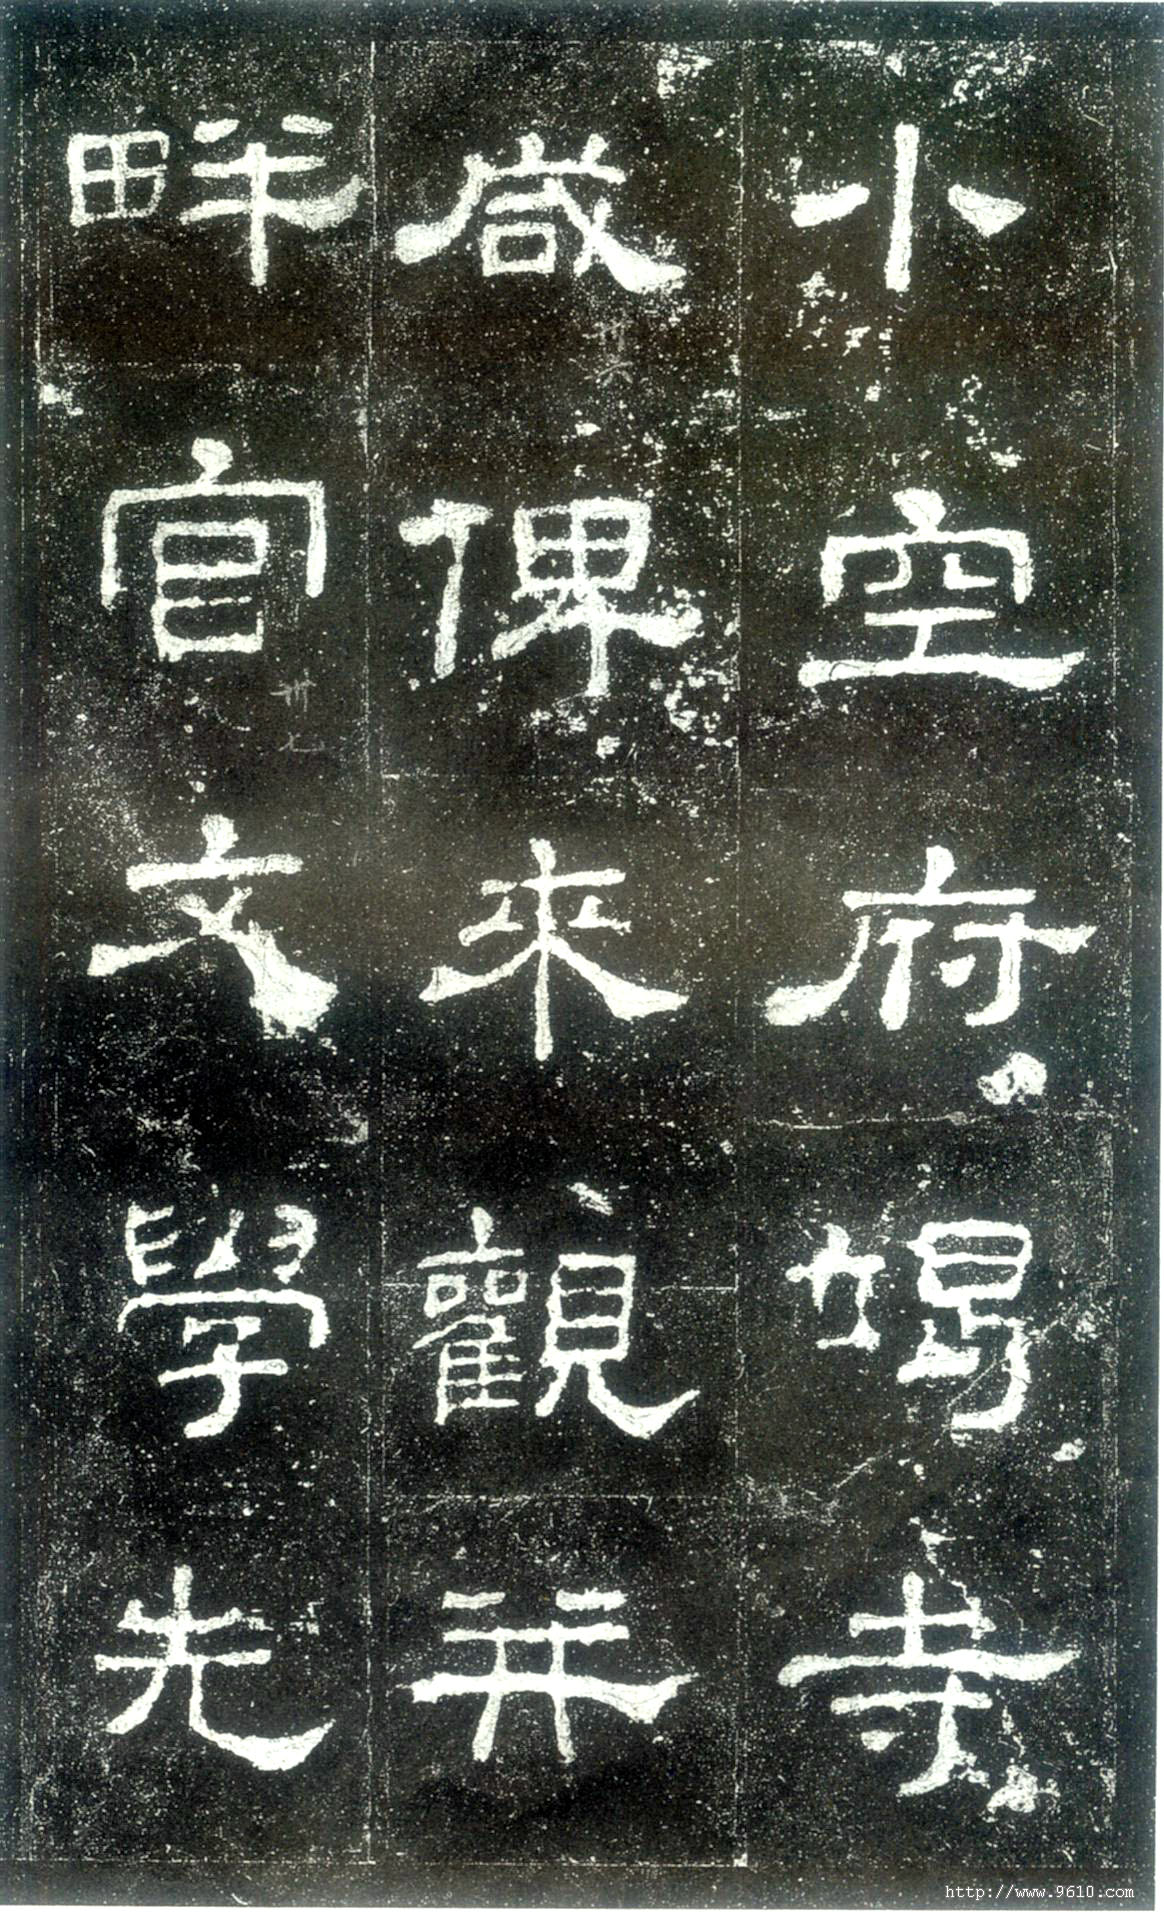 小空府竭寺
咸俾來觀并
畔官文學先
http://www.9610.com